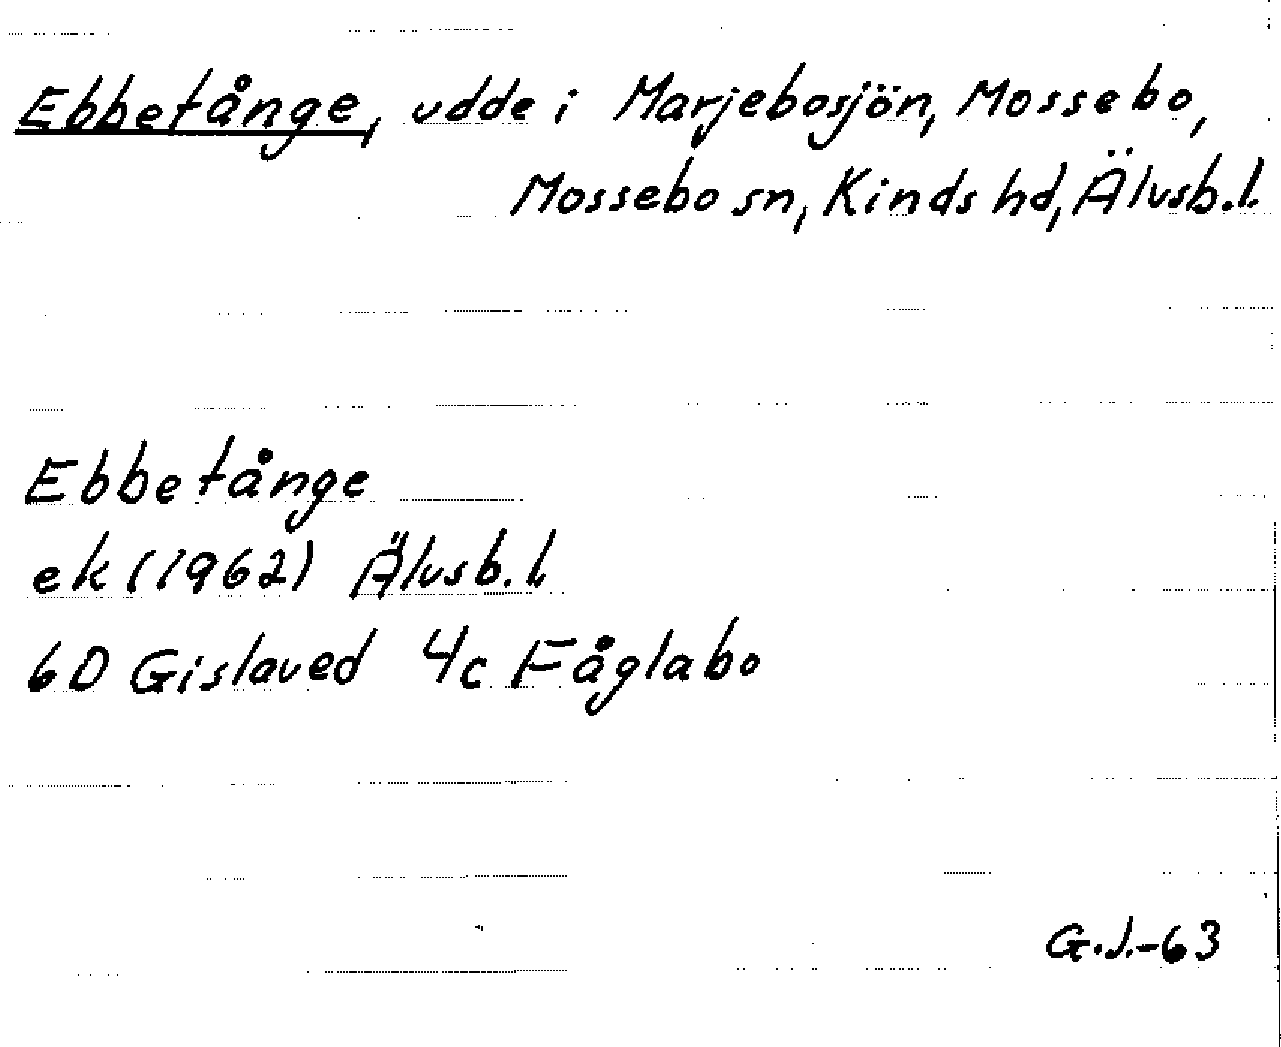 Ebbetånge, udde i Marjebosjön, Mossebo,
Mossebo sn, Kinds hd, Älvsb.l.
Ebbetånge
ek (1962) Älvsb.l.
6D Gislaved 4c Fåglabo
G.J.-63